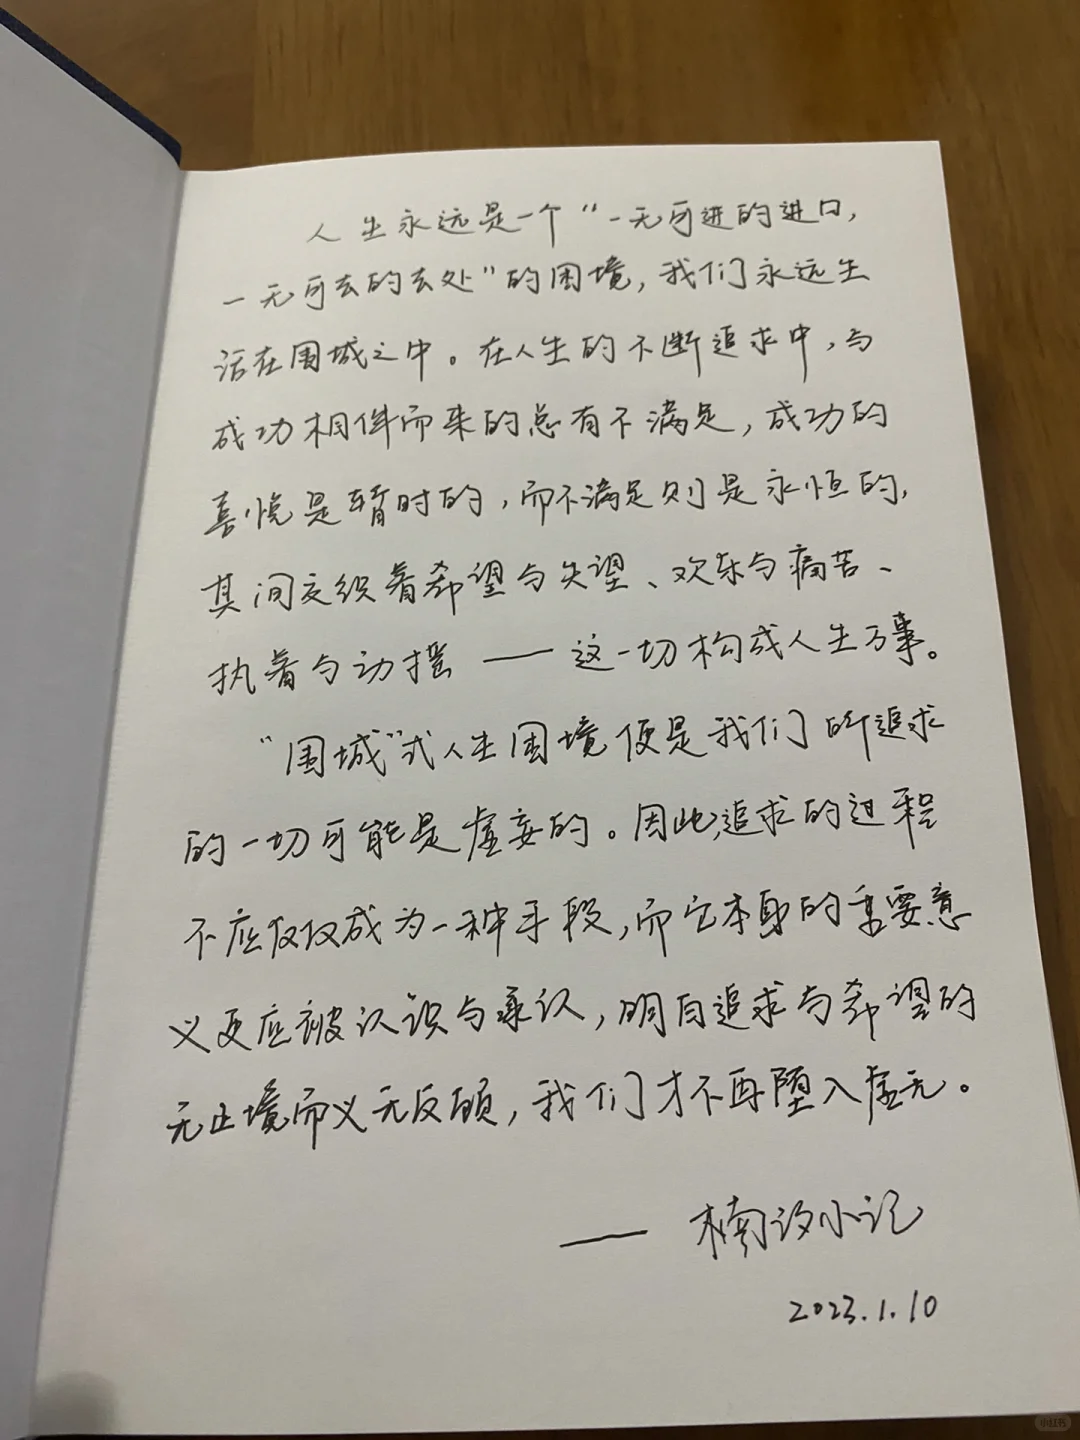 人生永远是一个“一无可进的进口,
一无可去的去处”的困境,我们永远生
活在围城之中。在人生的不断追求中,与
成功相伴而来的总有不满足,成功的
喜悦是暂时的,而不满足则是永恒的,
其间交织着希望与失望、欢乐与痛苦、
执着与动摇——这一切构成人生万事。
“围城”式人生困境便是我们所追求
的一切可能是虚妄的。因此,追求的过程
不应仅仅成为一种手段,而它本身的重要意
义更应被认识与承认,明白追求与希望的
无止境而义无反顾,我们才不再堕入虚无。
—— 楠汐小记
2023.1.10
小红书